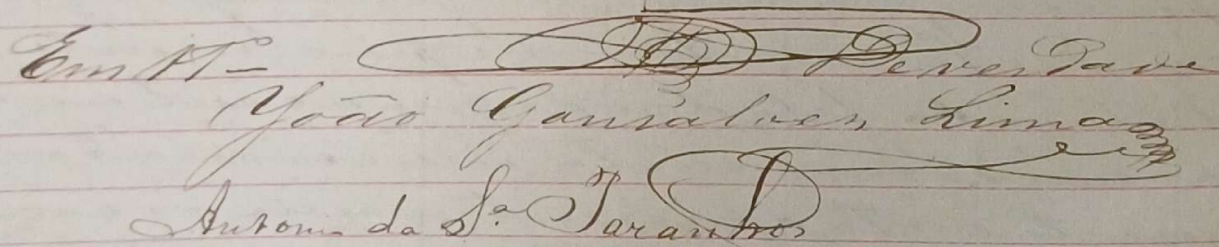 Em tt.º De verdade
João Gonsalves Lima
Antonio da S.ª Paranhos